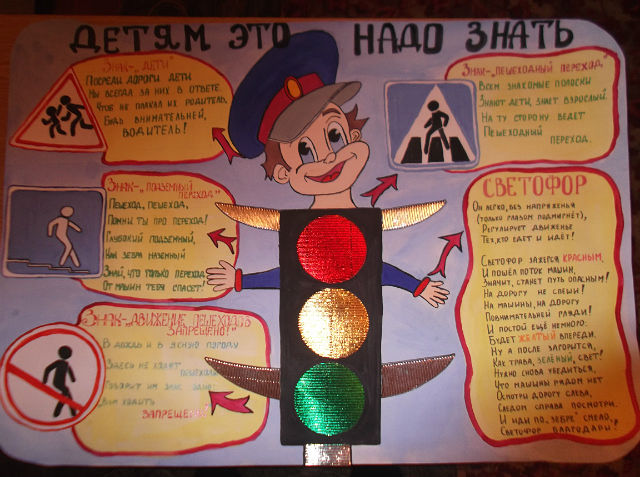 ДЕТЯМ ЭТО НАДО ЗНАТЬ
Знак-„Дети"
Посреди дороги дети
Мы всегда за них в ответе.
Чтоб не плакал их родитель,
Будь внимательней,
водитель!
Знак-„Пешеходный переход"
Всем знакомые полоски
Знают дети, знает взрослый.
На ту сторону ведет
Пешеходный
переход.
Знак-„Подземный
переход"
Пешеход, пешеход,
Помни ты про переход!
Глубокий подземный,
Как зебра наземный
Знай, что только переход
От машин тебя спасет!
Знак-„Движение пешеходов
запрещено!"
В дождь и в ясную погоду
Здесь не ходят
пешеходы.
Говорит им знак одно:
Вам ходить
запрещено!
СВЕТОФОР
Он легко, без напряженья
(только глазом подмигнёт),
Регулирует движенье
Тех, кто едет и идёт!
Светофор зажегся красным,
И пошёл поток машин.
Значит, станет путь опасным!
На дорогу не спеши!
На машины, на дорогу
Повнимательней гляди!
И постой ещё немного:
Будет жёлтый впереди.
Ну а после загорится,
Как трава, зелёный, свет!
Нужно снова убедиться,
Что машины рядом нет
Осмотри дорогу слева,
Следом справа посмотри.
И иди по „зебре" смело,
Светофор благодари!